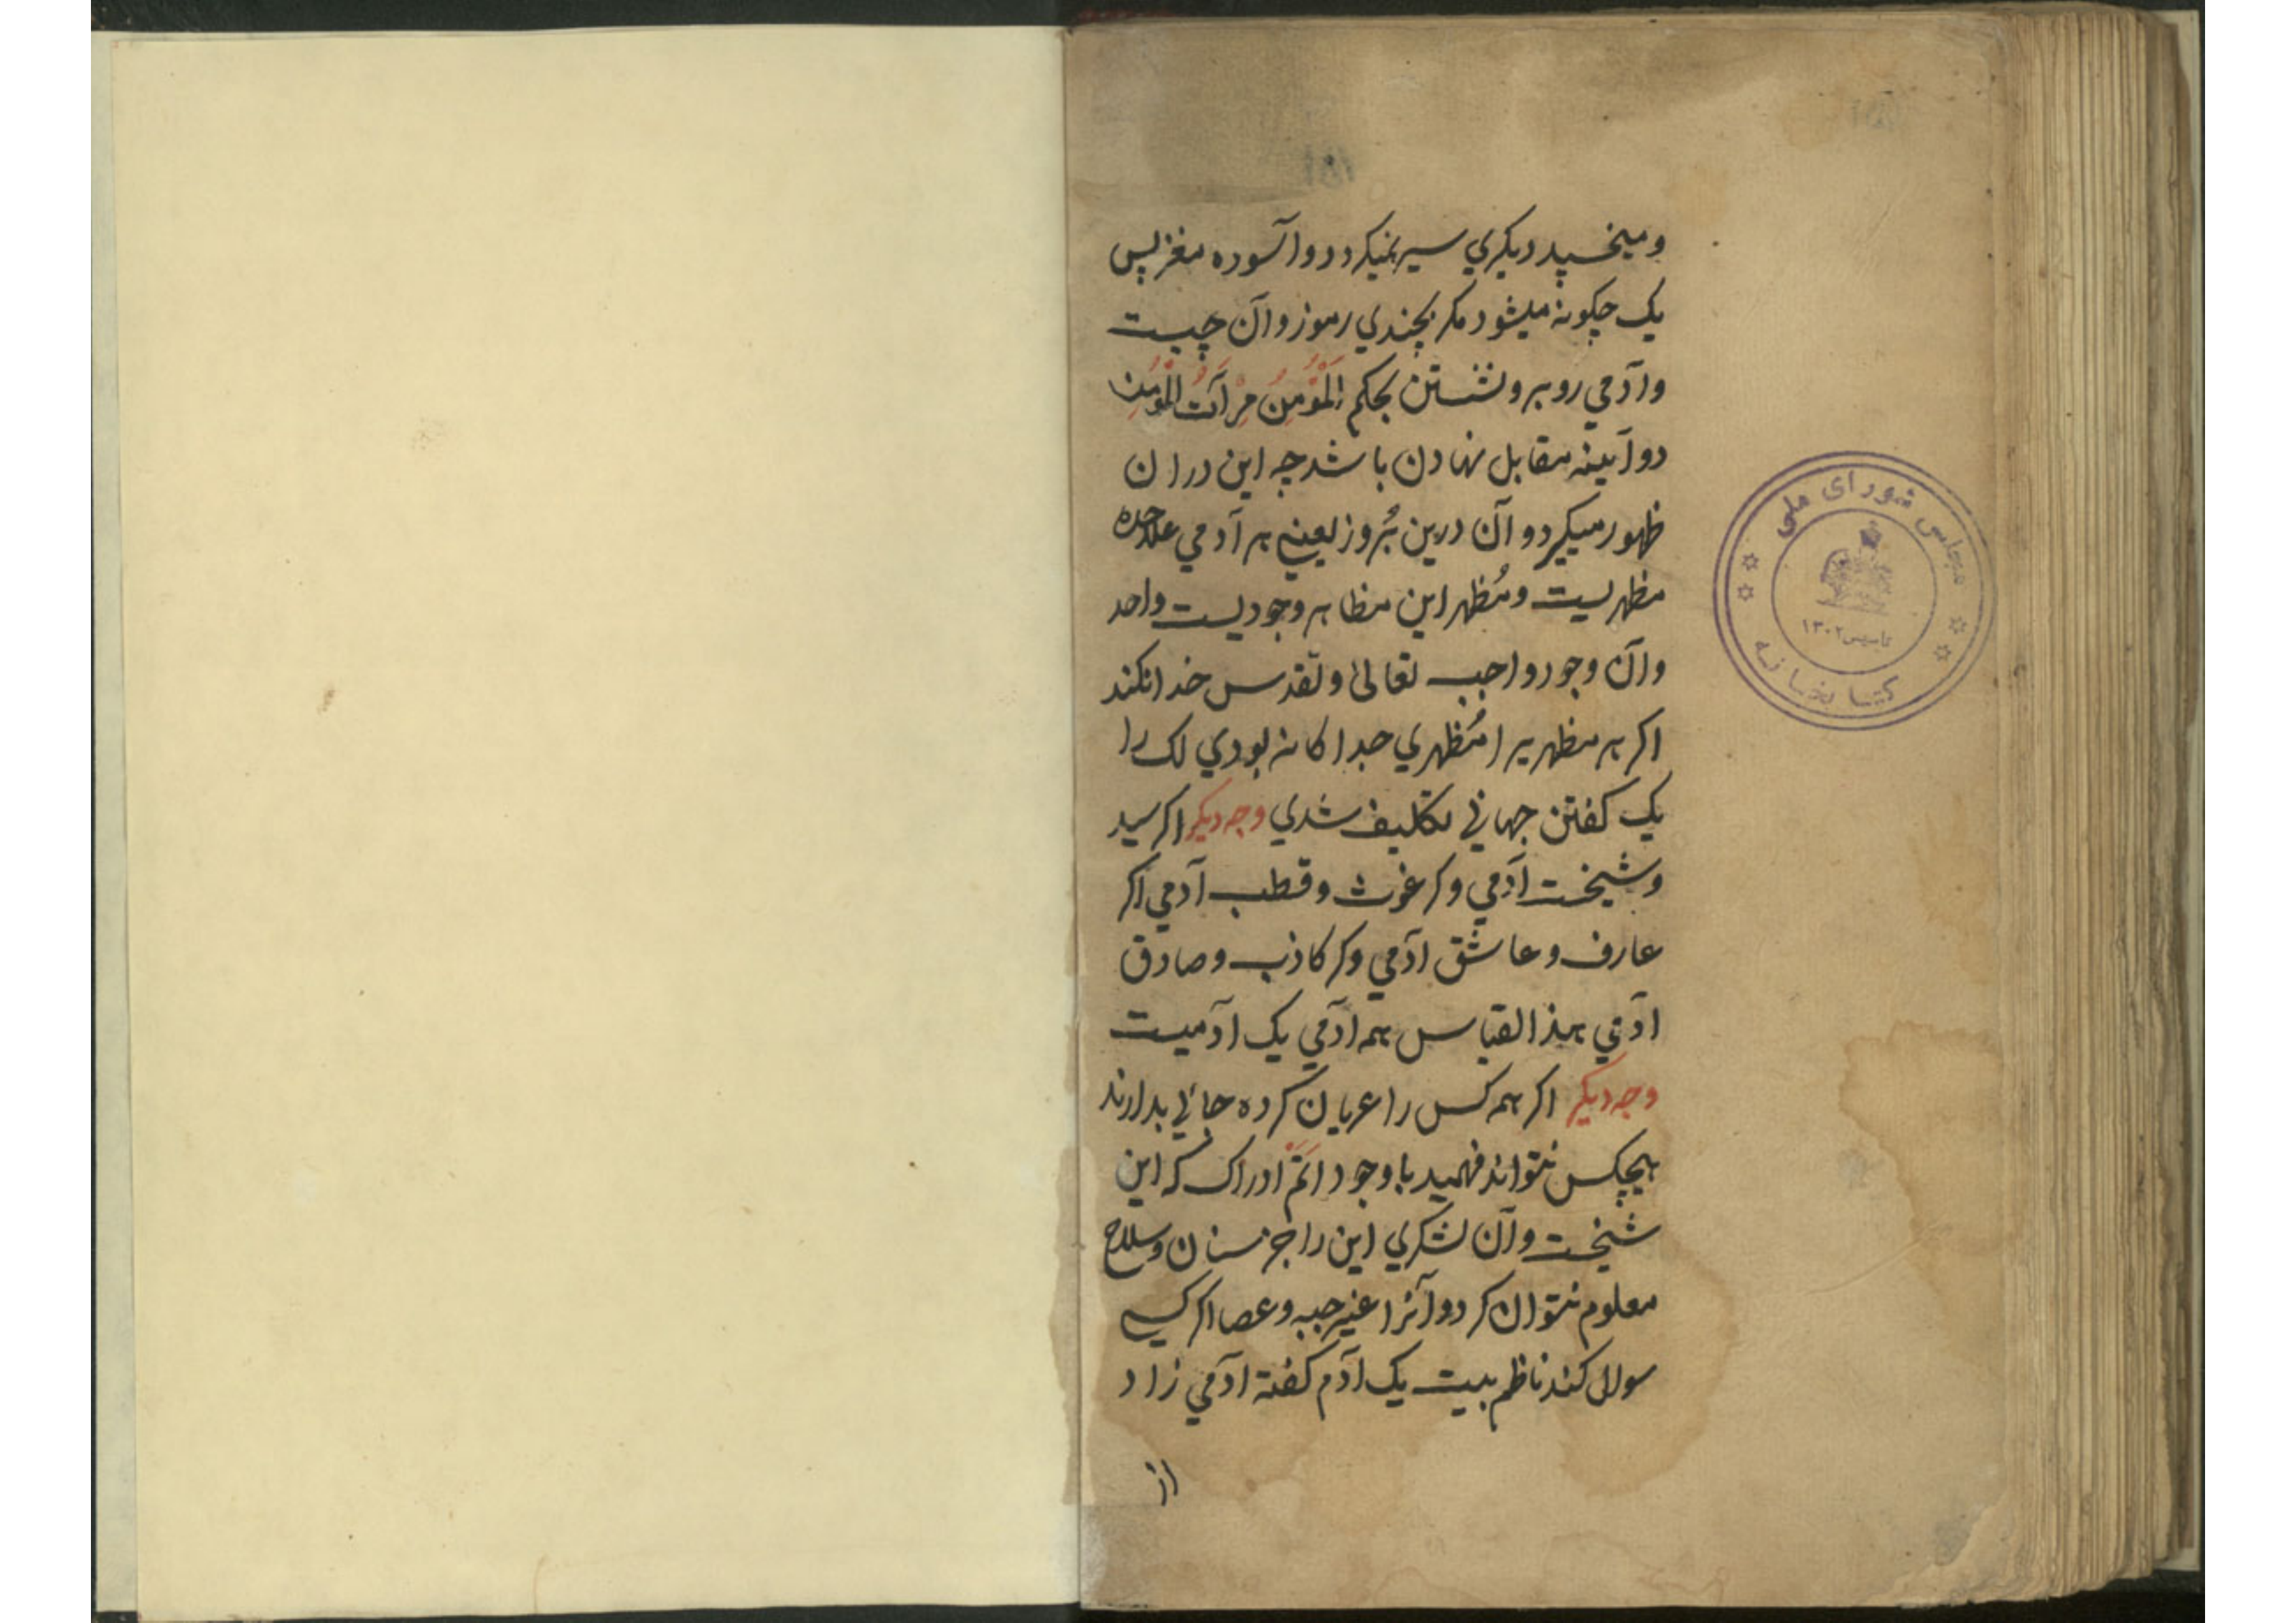 و میخسپد دیکري سیر نمیکردد و آسوده مغز پس
یک چکونه میشود مکر بچندي رموز و آن چیست
و آدمي روبرو نشستن بحکم اَلْمُؤْمِنُ مِرْآتُ الْمُؤْمِنِ
دو آیینه مقابل نهادن باشد چه این در ان
ظهور میکیرد و آن درین بُروز یعني هر آدمي علاحده
مظهریست و مُظهر این مظاهر وجودیست واحد
و آن وجود واجب تعالیٰ و تقدس خدا نکند
اکر هر مظهریرا مُظهري جداکانه بودي لک را
یک کفتن جهاني تکلیف شدي وجه دیکر اکر سید
و شیخست آدمي وکر غوث و قطب آدمي اکر
عارف و عاشق آدمي وکر کاذب و صادق
ادمي بهذا القیاس همه آدمي یک آدمیست
وجه دیکر اکر همه کس را عریان کرده جائي بدارند
هیچکس نتواند فهمید با وجود اَتَمّ ادراک که این
شیخست و آن لشکري این را جز سنان و سلاح
معلوم نتوان کرد و آنرا غیر جبه و عصا اکر کسي
سوال کند ناظم بیت یک آدم کفته آدمي زاد
از
مجلس شورای ملی
تاسیس ۱۳۰۲
کتابخانه